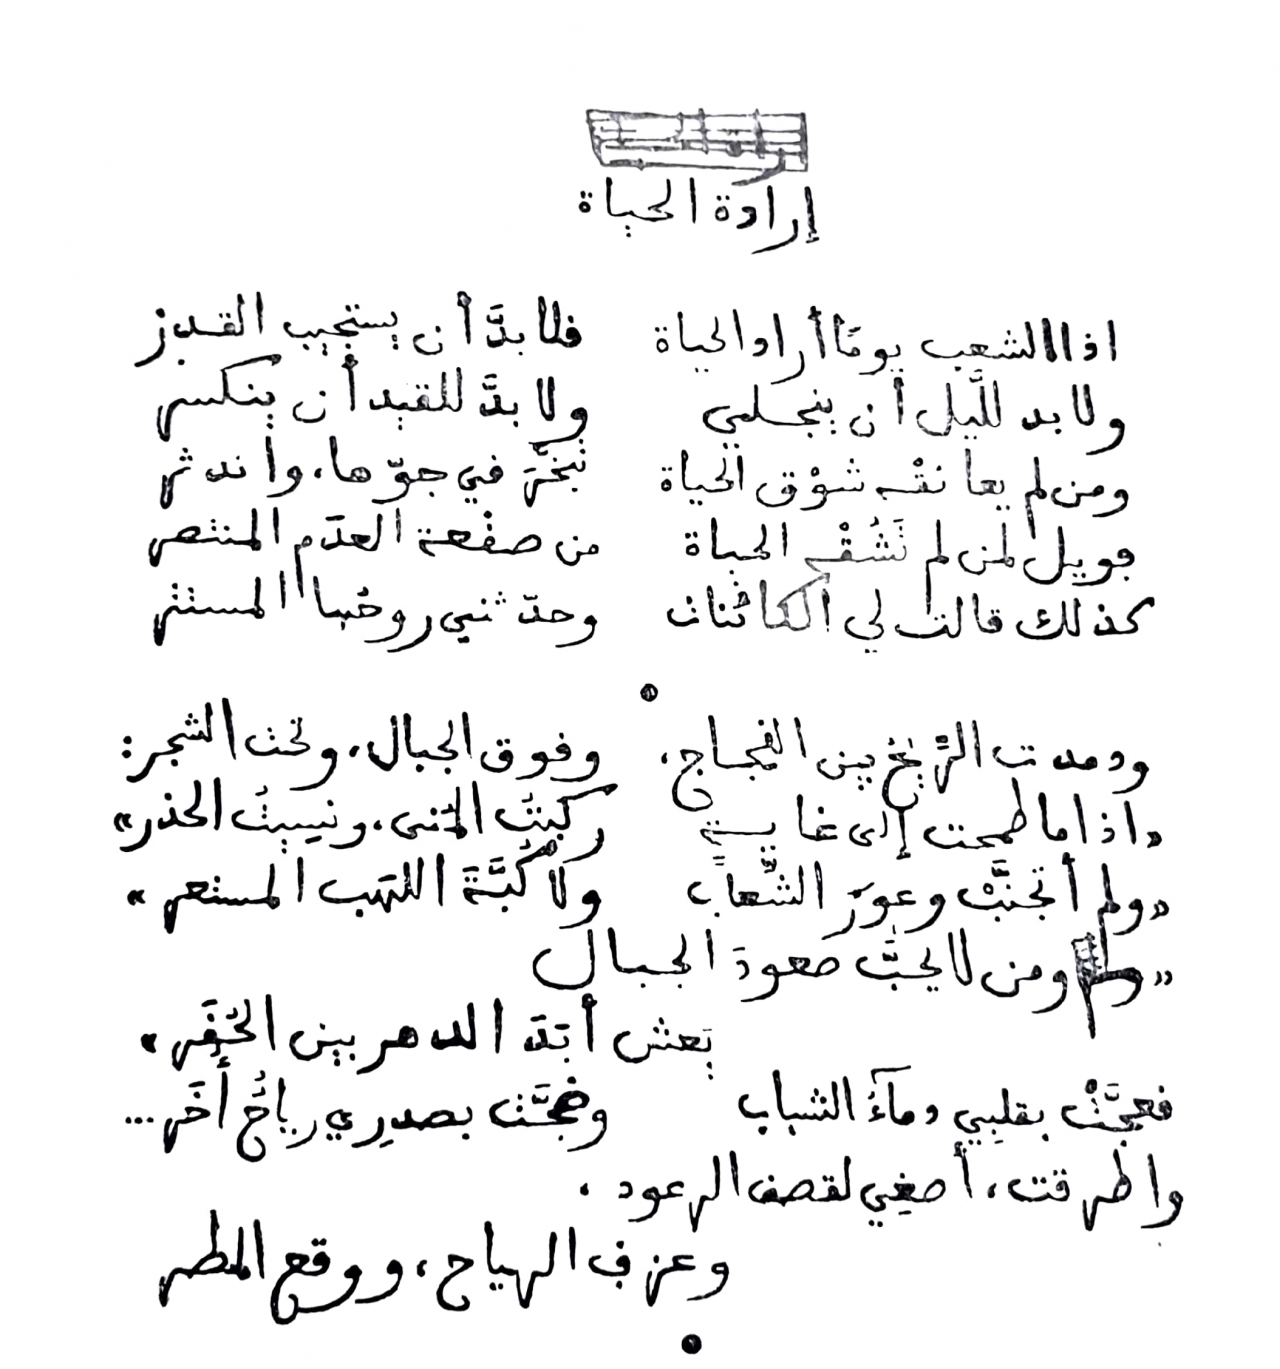 إرادة الحياة
اذا الشعب يومًا أراد الحياة فلا بدَّ أن يستجيب القدر
ولا بد للَّيل أن ينجلي ولا بدَّ للقيد أن ينكسر
ومن لم يعانقْه شوْق الحياة تبخَّرَ في جوّها، واندثر
فويل لمن لم تَشُقْه الحياة من صفْعة العدَم المنتصر
كذلك قالت لي الكائنات وحدّثني روحُها المستتر
ودمدت الرِّيحُ بين الفجاج، وفوق الجبال، وتحت الشجر:
«اذا ما طمحت إلى غاية ركبتُ المُنى، ونسِيتُ الحذر»
«ولم أتجنَّبْ وعورَ الشِّعاب ولا كُبَّةَ اللهَب المستعر»
«ومن لا يحبَّ صعودَ الجبال
يَعش أبَدَ الدهر بين الحُفَر»
فعجَّتْ بقلبِي دمآءُ الشباب وضجَّت بصدرِي رياحُ أُخَر...
واطرقت، أصغِي لقصف الرعود،
وعزف الرياح، ووقع المطر